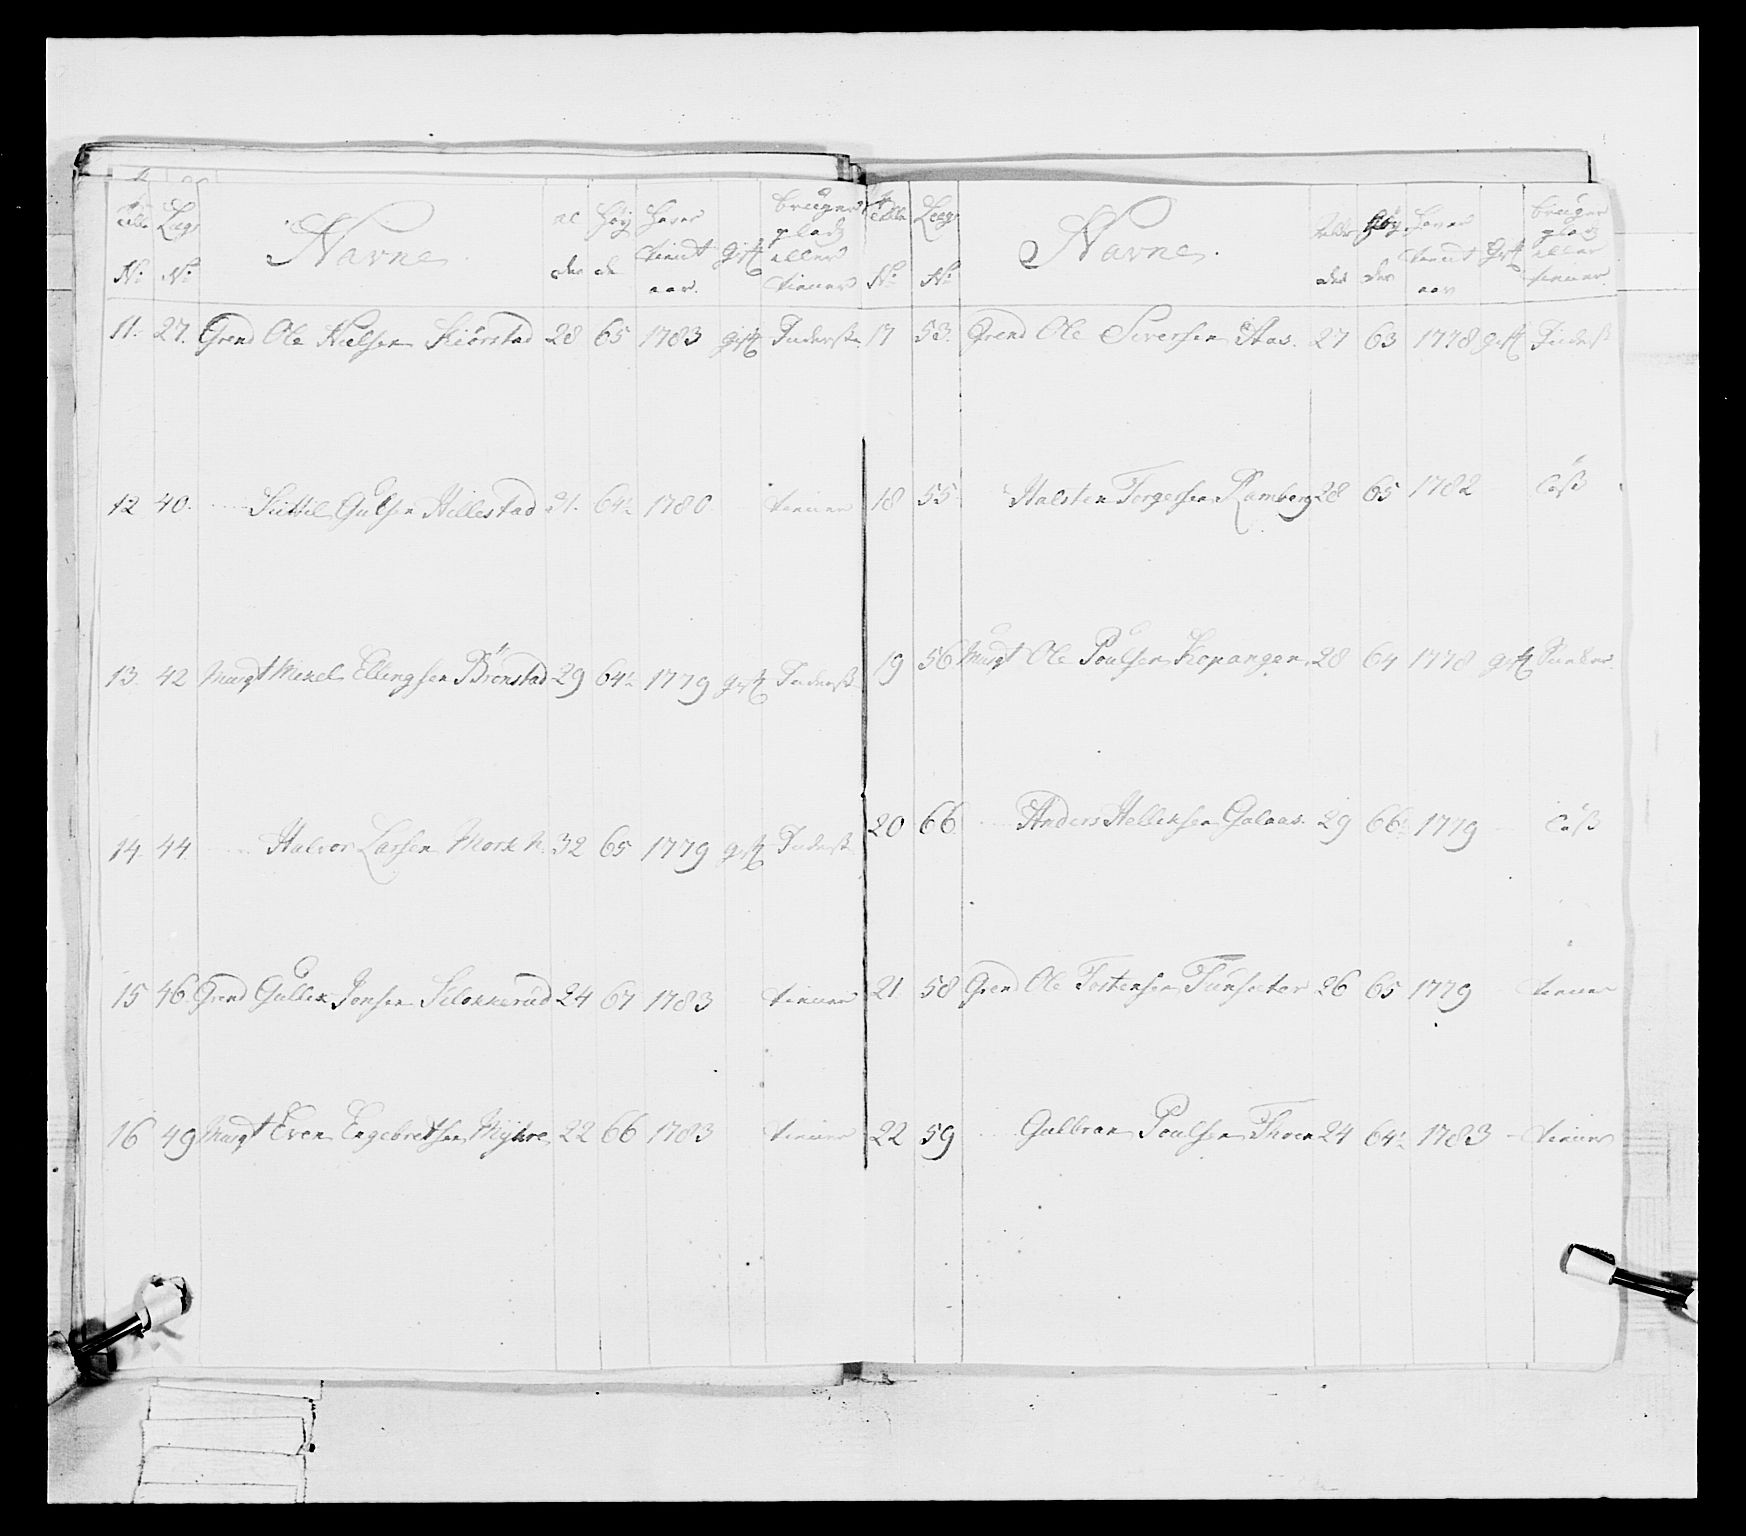 Rulle Lægs Navne. Al Høy Haver bruger
der de tient Gift plads
No No aar. eller
tiener
11. 27. Grend Ole Nielsen Kiørstad 28 65 1783 gift Inderst
12 40. Kittil Gulsen Hillestad 21. 64½ 1780. tiener
13. 42 Musqt Mikel Ellingsen Brönstad 29 64½ 1779 gift Inderst
14. 44. Halvor Larsen Mork N. 32 65 1779 gift Inderst
15 46. Grend Gullik Jonsen Klokkerud 24 67 1783 tiener
16 49 Musqt Even Engebretsen Myhre 22 66 1783 tiener
Rulle Lægs Navne. Alder Høy Haver bruger
der der tient Gift plads
No No aar eller
tiener
17 53. Grend Ole Siversen Aas. 27 63 1778 gift Inderst
18 55 Halsten Torgersen Ramberg 28 65 1782
19 56 Musqt Ole Poulsen Kopangen 28 64 1778 gift
20 66 Anders Helliksen Galaas. 29 66½ 1779
21. 58 Grend Ole Tostensen Tunseter 26 65 1779 tiener
22 59 Gulbran Poulsen Thoen 24 64½ 1783 tiener